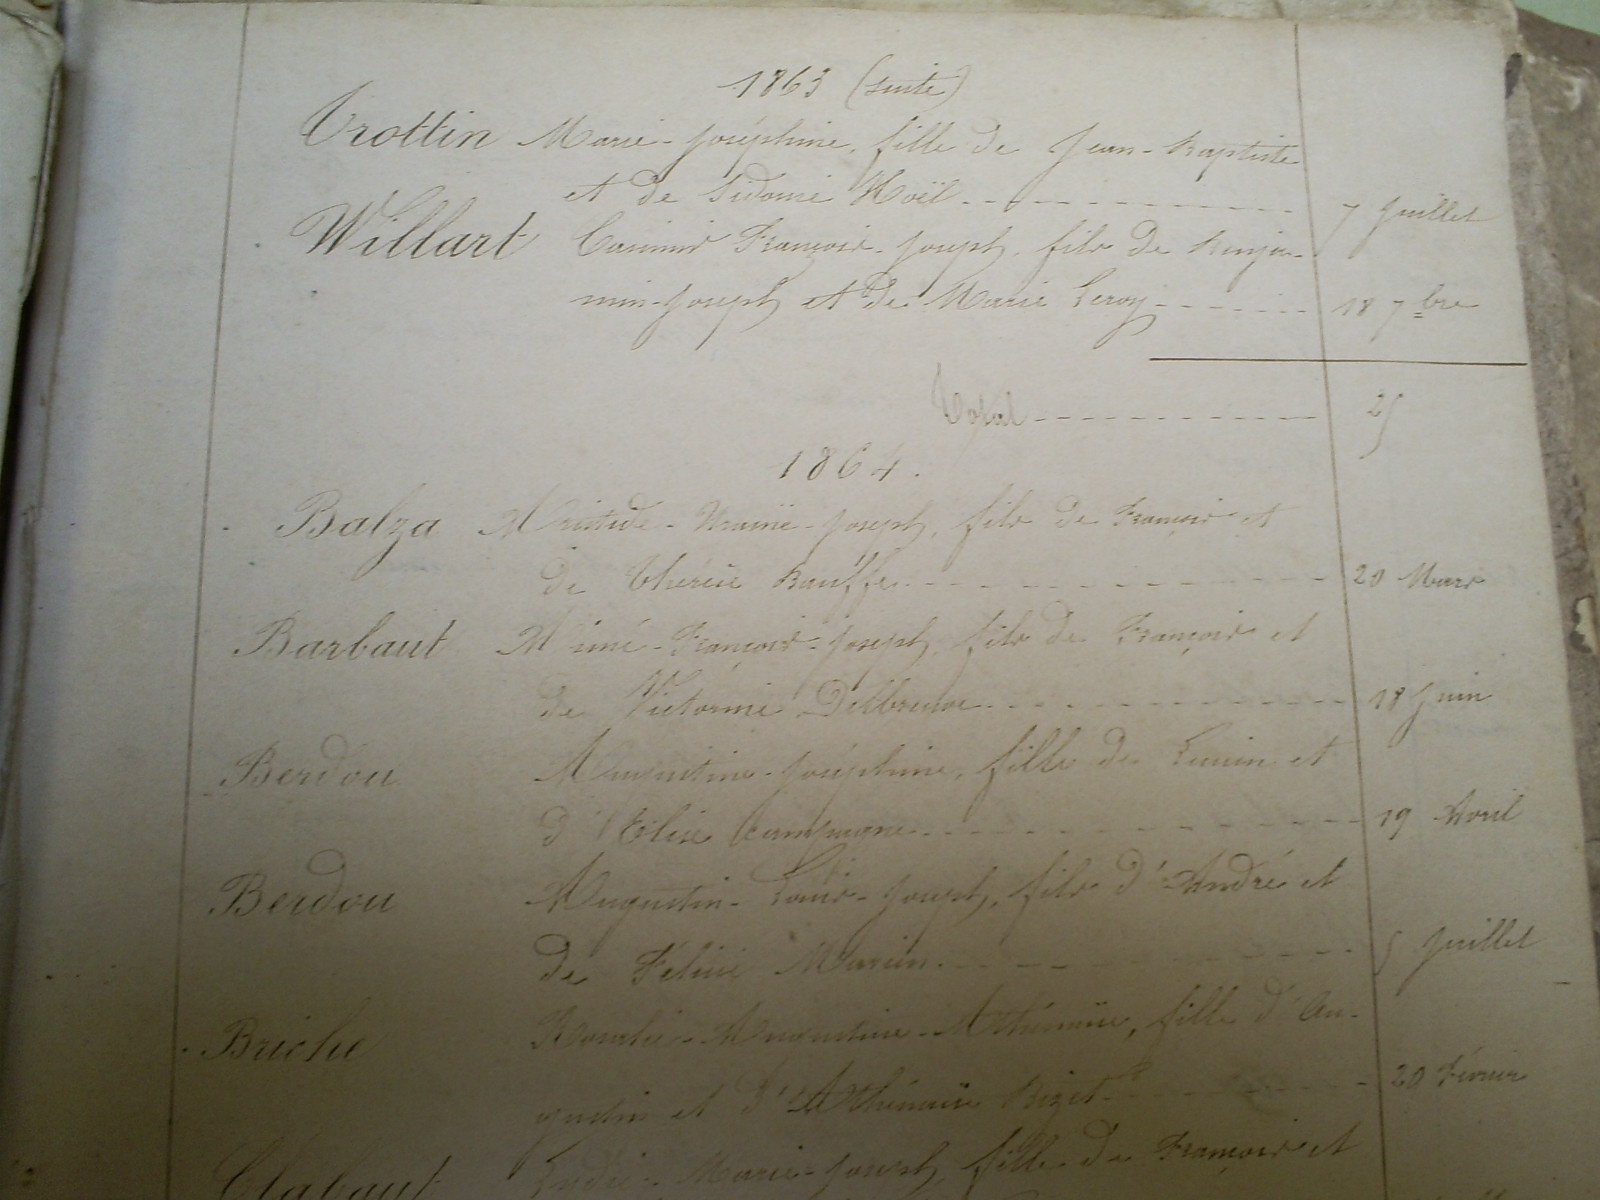 1863 (suite)
Trottin Marie-Joséphine, fille de Jean-Baptiste
et de Sidonie Noël 7 Juillet
Willart Casimir François-Joseph, fils de Benja-
min-Joseph et de Marie Leroy 18 7bre
Total 25
1864.
Balza Aristide-Uranie-Joseph, fils de François et
de Thérèse Bauffe 20 Mars
Barbaut Aimé-François-Joseph, fils de François et
de Victorine 18 Juin
Berdou Augustine-Joséphine, fille de Firmin et
d'Elise Campagne 19 Avril
Berdou Augustin-Louis-Joseph, fils d'André et
de Felicie 5 Juillet
Briche Rosalie-Augustine-Athénaïse, fille d'Au-
gustin et d'Athénaïse Bizet 20 Février
Clabaut Marie-Joseph, fille de François et